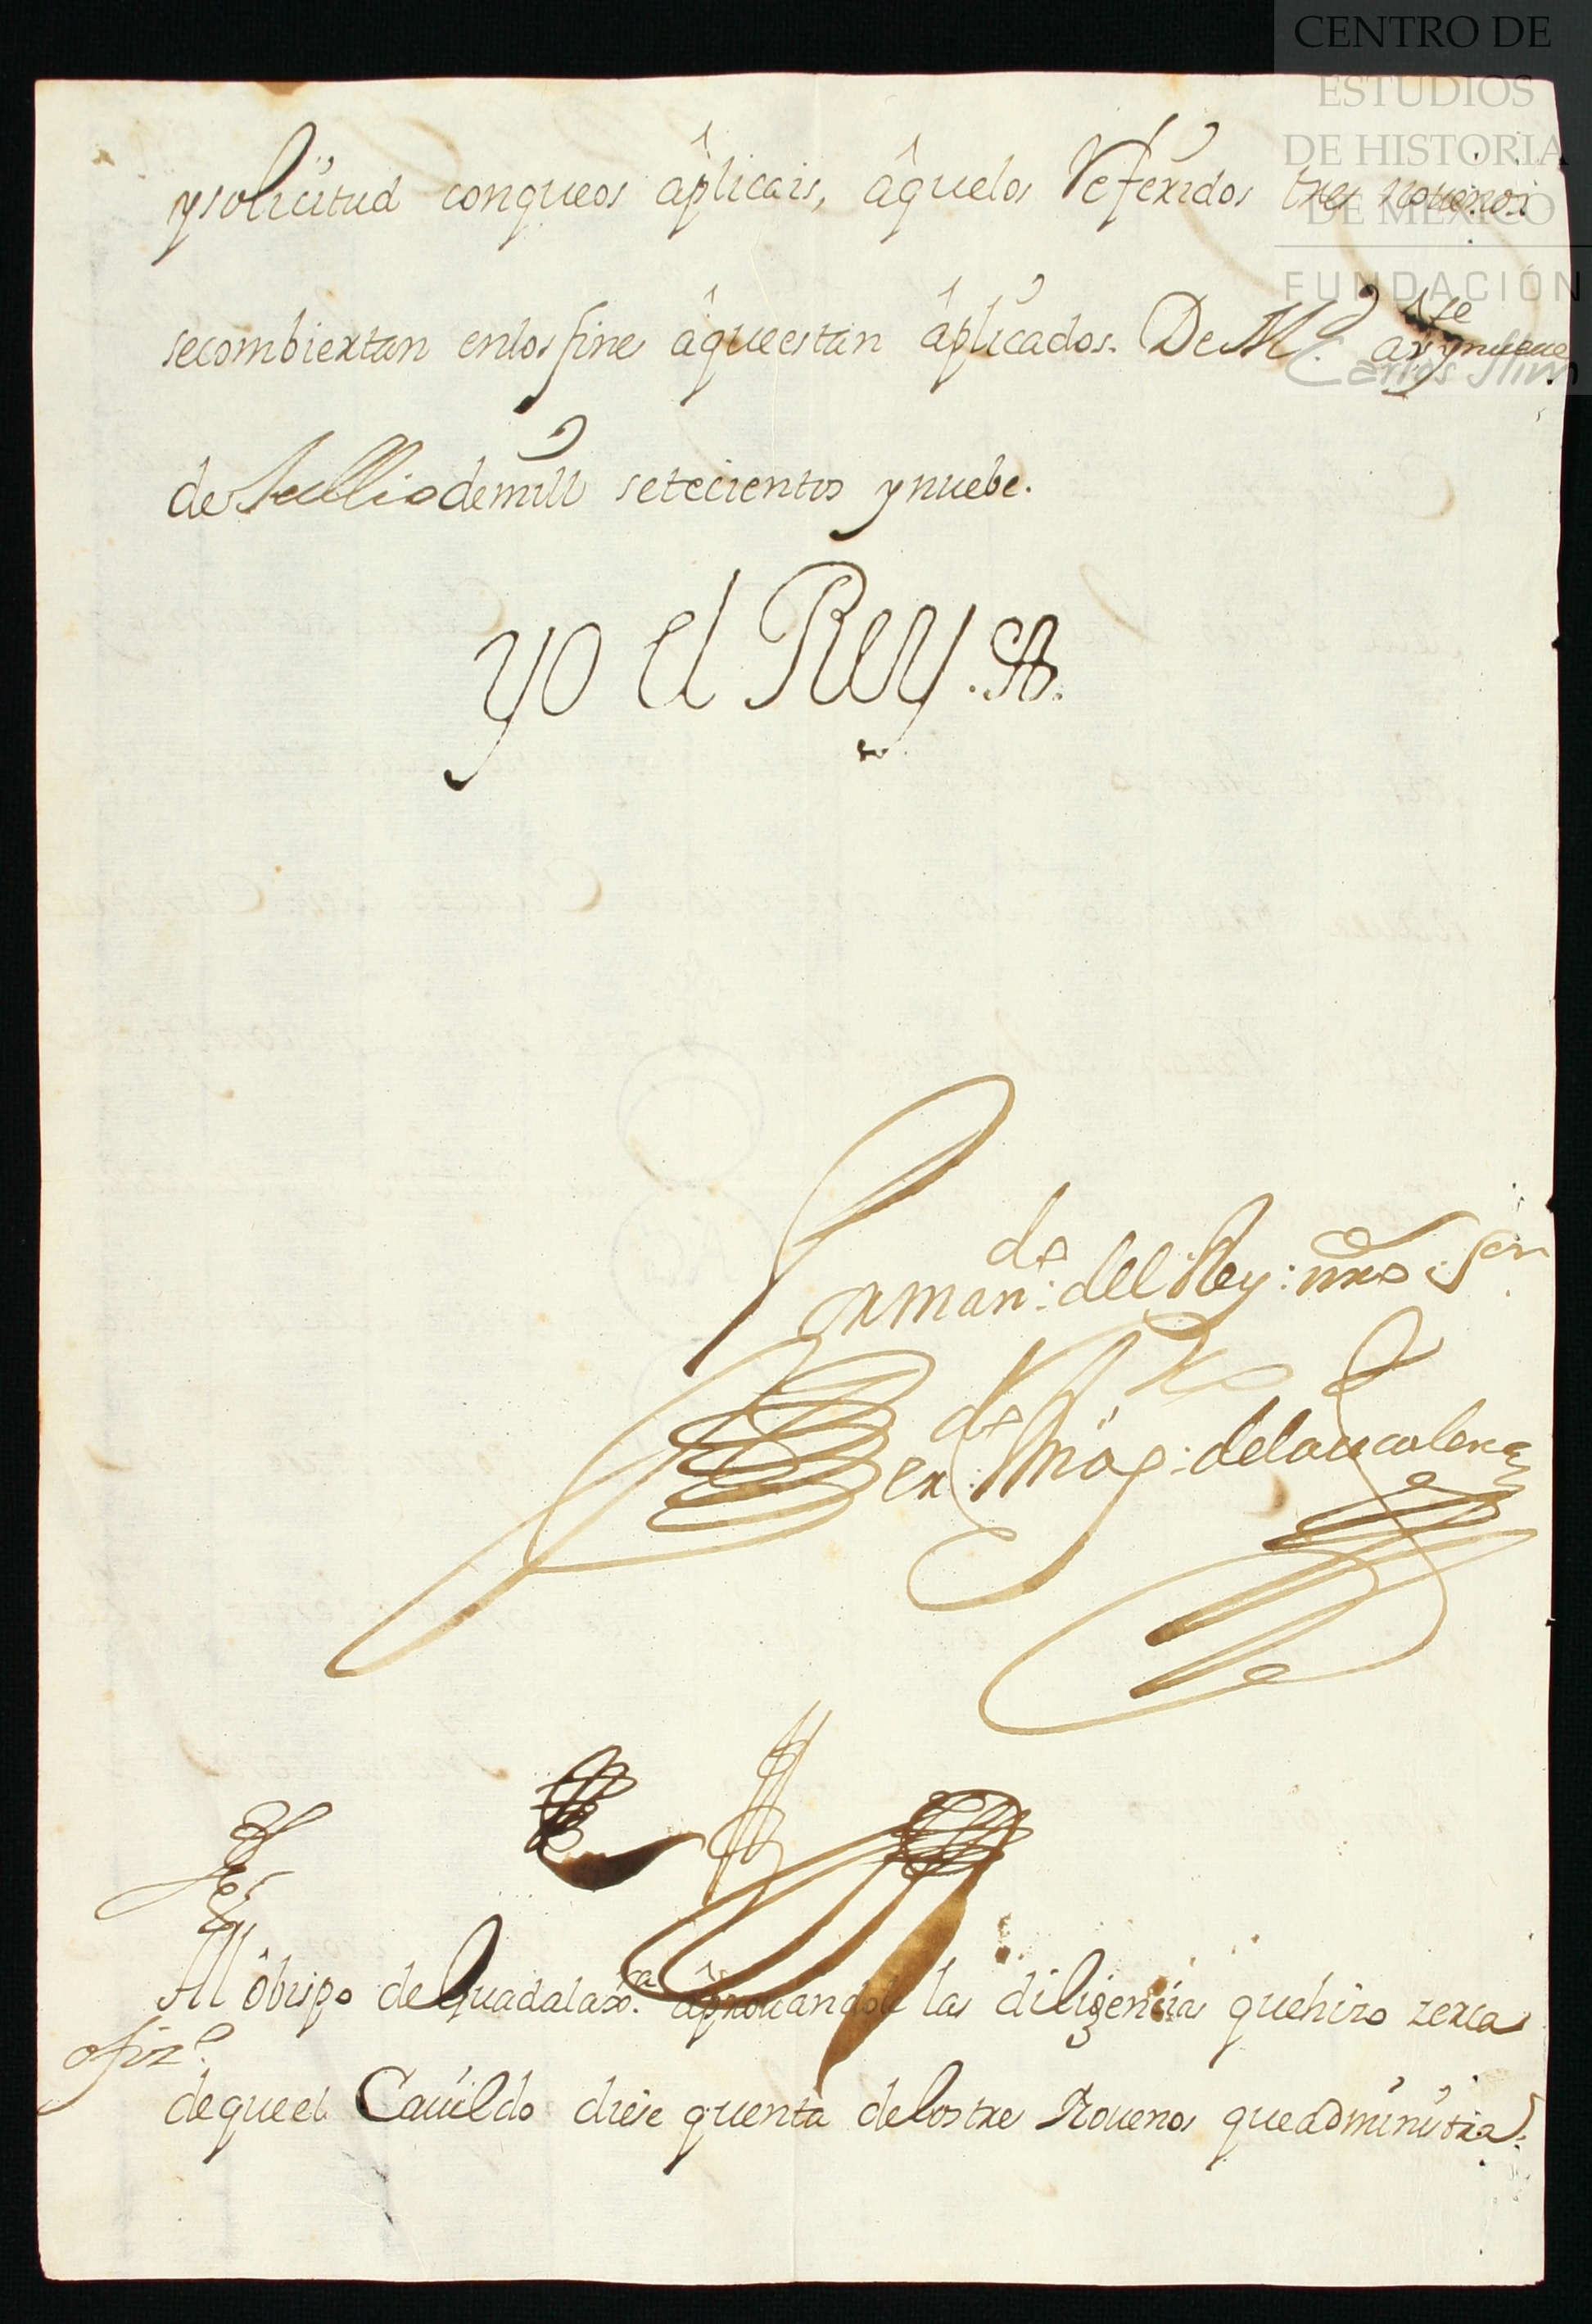 CENTRO DE
ESTUDIOS
DE HISTORIA
DE MÉXICO
FUNDACIÓN
Carlos Slim
y solicitud conqueos âplicais, âquelos Referidos tres nouenos
secombiertan enlos fines âqueestan âplicados. De M.d a
de Jullio demill setecientos ynuebe.
yo el Rey.
Por man.do del Rey: nro Sen.r
de la
Al ôbispo de Guadalax.a âprouandole las diligencias quehizo zerca
ofiz.o
dequeel Cauildo diese quenta delostres Nouenos queadministra.